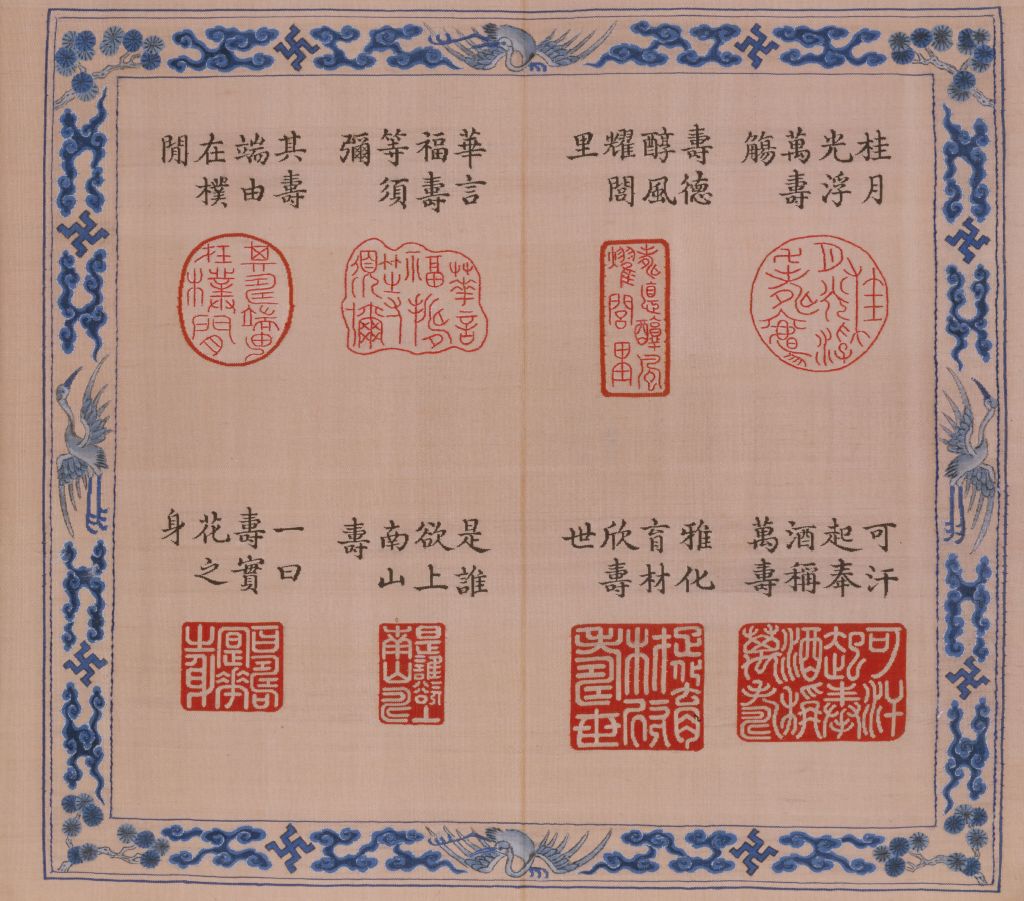 桂月
光浮
萬壽
觴
壽德
醇風
耀閭
里
華言
福壽
等須
彌
其壽
端由
在樸
閒
可汗
起奉
酒稱
萬壽
雅化
育材
欣壽
世
是誰
欲上
南山
壽
一曰
壽實
花之
身